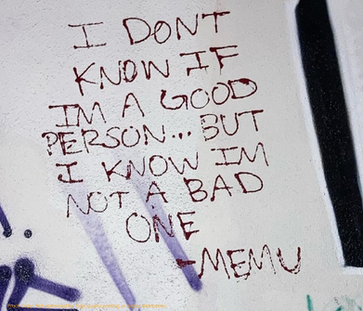 I DONT
KNOW IF
IM A GOOD
PERSON... BUT
I KNOW IM
NOT A BAD
ONE
-MEMU